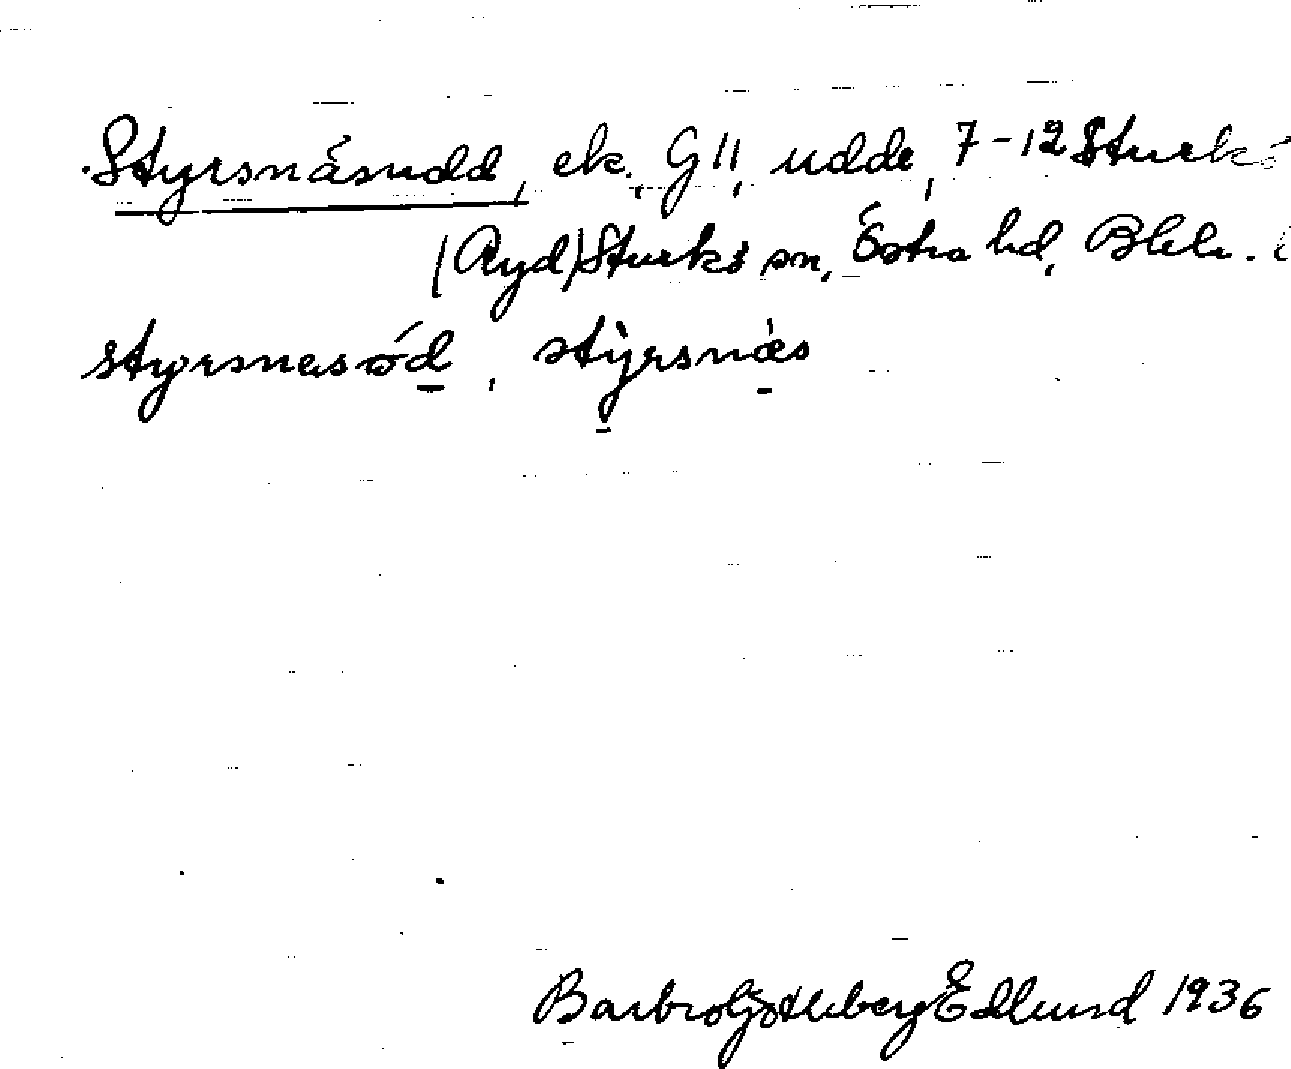 Styrsnäsudd, ek. G 11, udde, 7-12 Sturkö
(Ayd) Sturkö sn, Östra hd, Blek.
styrsnæsöd, styrsnæs
Barbro Götlberg Edlund 1936